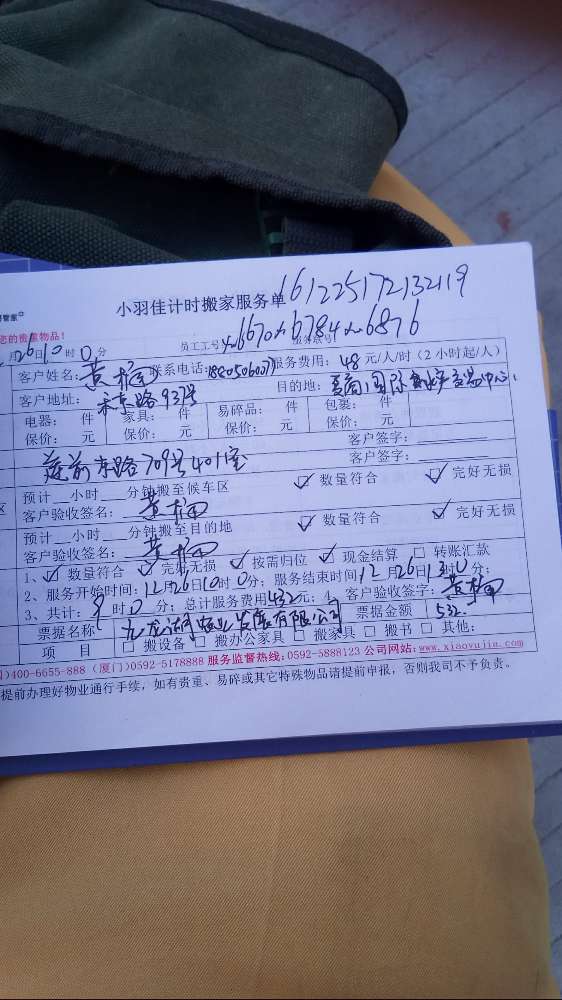 管家
小羽佳计时搬家服务单 661225172132119
您的贵重物品!
员工工号 6670 6784 6876
月26日10时0分
客户姓名: 黄梅 联系电话: 服务费用: 48元/人/时(2小时起/人)
客户地址: 东路93号 目的地: 国际 中心
电器: 件 家具: 件 易碎品: 件 包裹: 件
保价: 元 保价: 元 保价: 元 保价: 元
客户签字:
莲前东路709号401室 客户签字:
预计__小时__分钟搬至候车区 ☑ 数量符合 ☑ 完好无损
客户验收签名:
预计__小时__分钟搬至目的地 ☑ 数量符合 ☑ 完好无损
客户验收签名:
1、☑ 数量符合 ☑ 完好无损 ☑ 按需归位 ☑ 现金结算 □ 转账汇款
2、服务开始时间: 12月26日10时0分; 服务结束时间12月26日13时0分;
3、共计: 9时0分; 总计服务费用432元; 4、客户验收签字:
票据名称 九龙 物业发展有限公司 票据金额 532
项 目 □ 搬设备 □ 搬办公家具 □ 搬家具 □ 搬书 □ 其他:
)400-6655-888 (厦门)0592-5178888 服务监督热线:0592-5888123 公司网站:www.xiaoyujia.com
提前办理好物业通行手续,如有贵重、易碎或其它特殊物品请提前申报,否则我司不予负责。